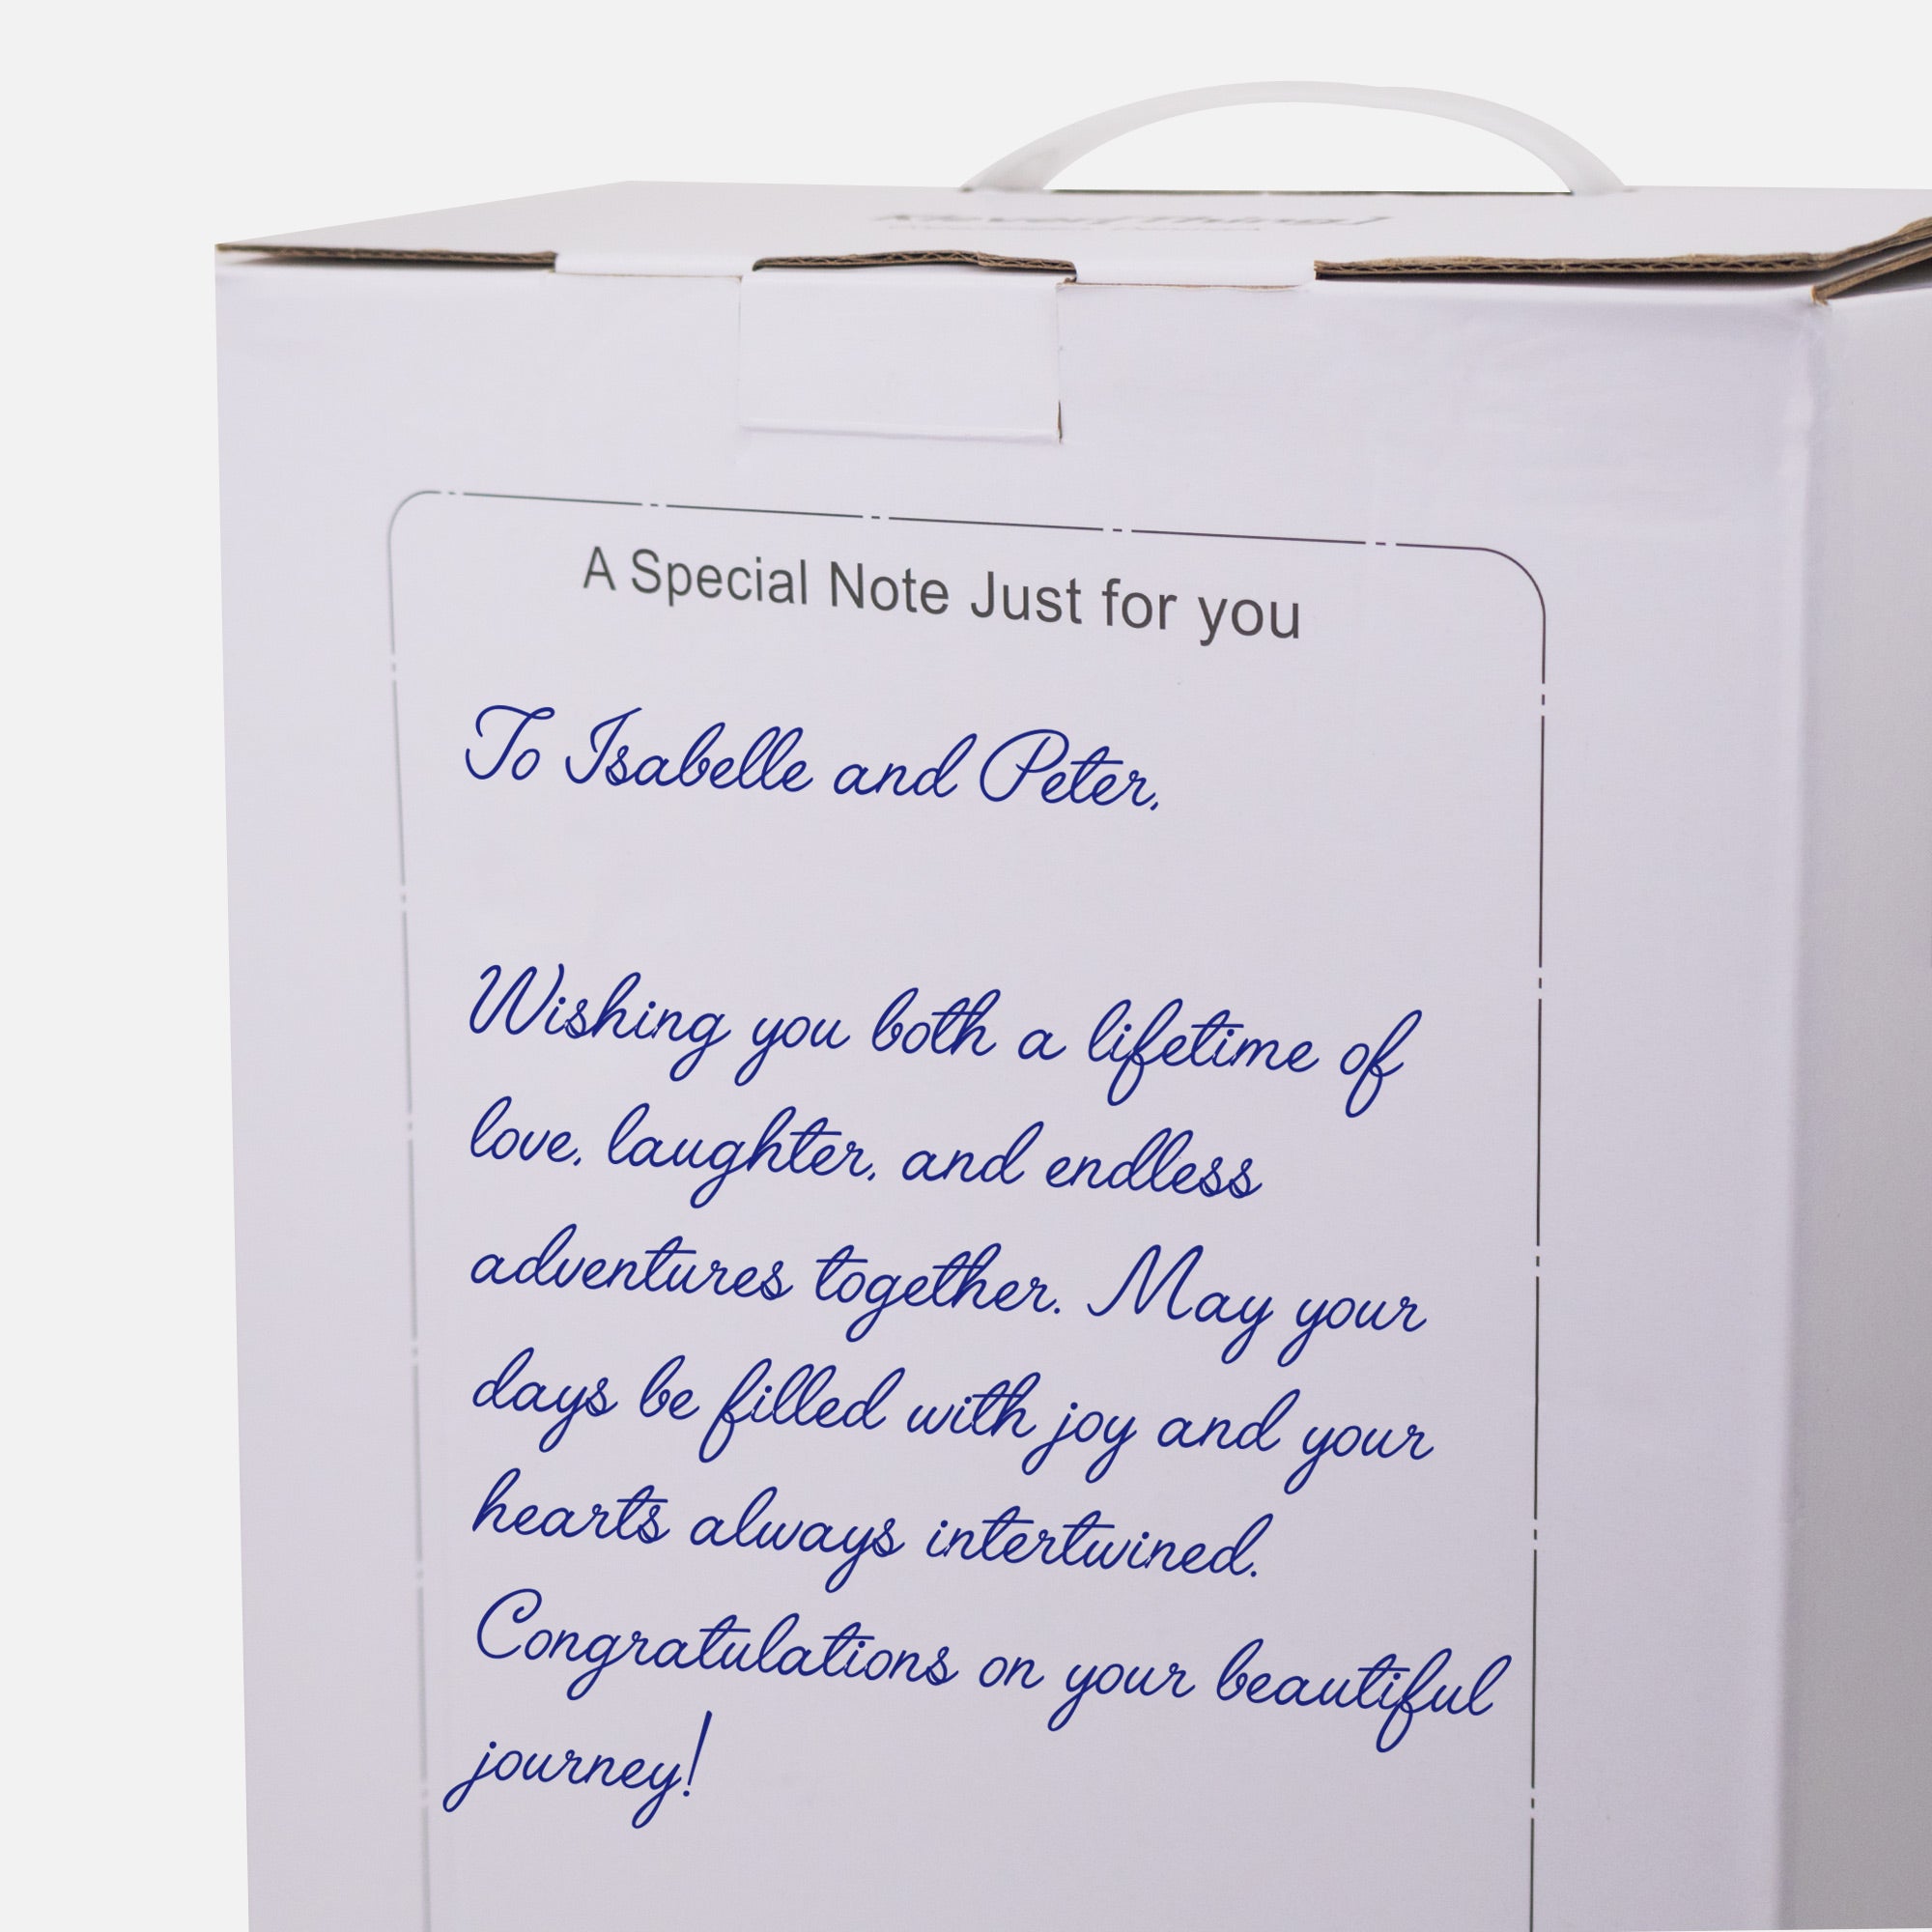 A Special Note Just for you
To Isabelle and Peter,
Wishing you both a lifetime of
love, laughter, and endless
adventures together. May your
days be filled with joy and your
hearts always intertwined.
Congratulations on your beautiful
journey!